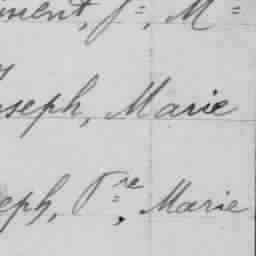 ment, J=, M=
oseph, Marie
eph, Pre, Marie